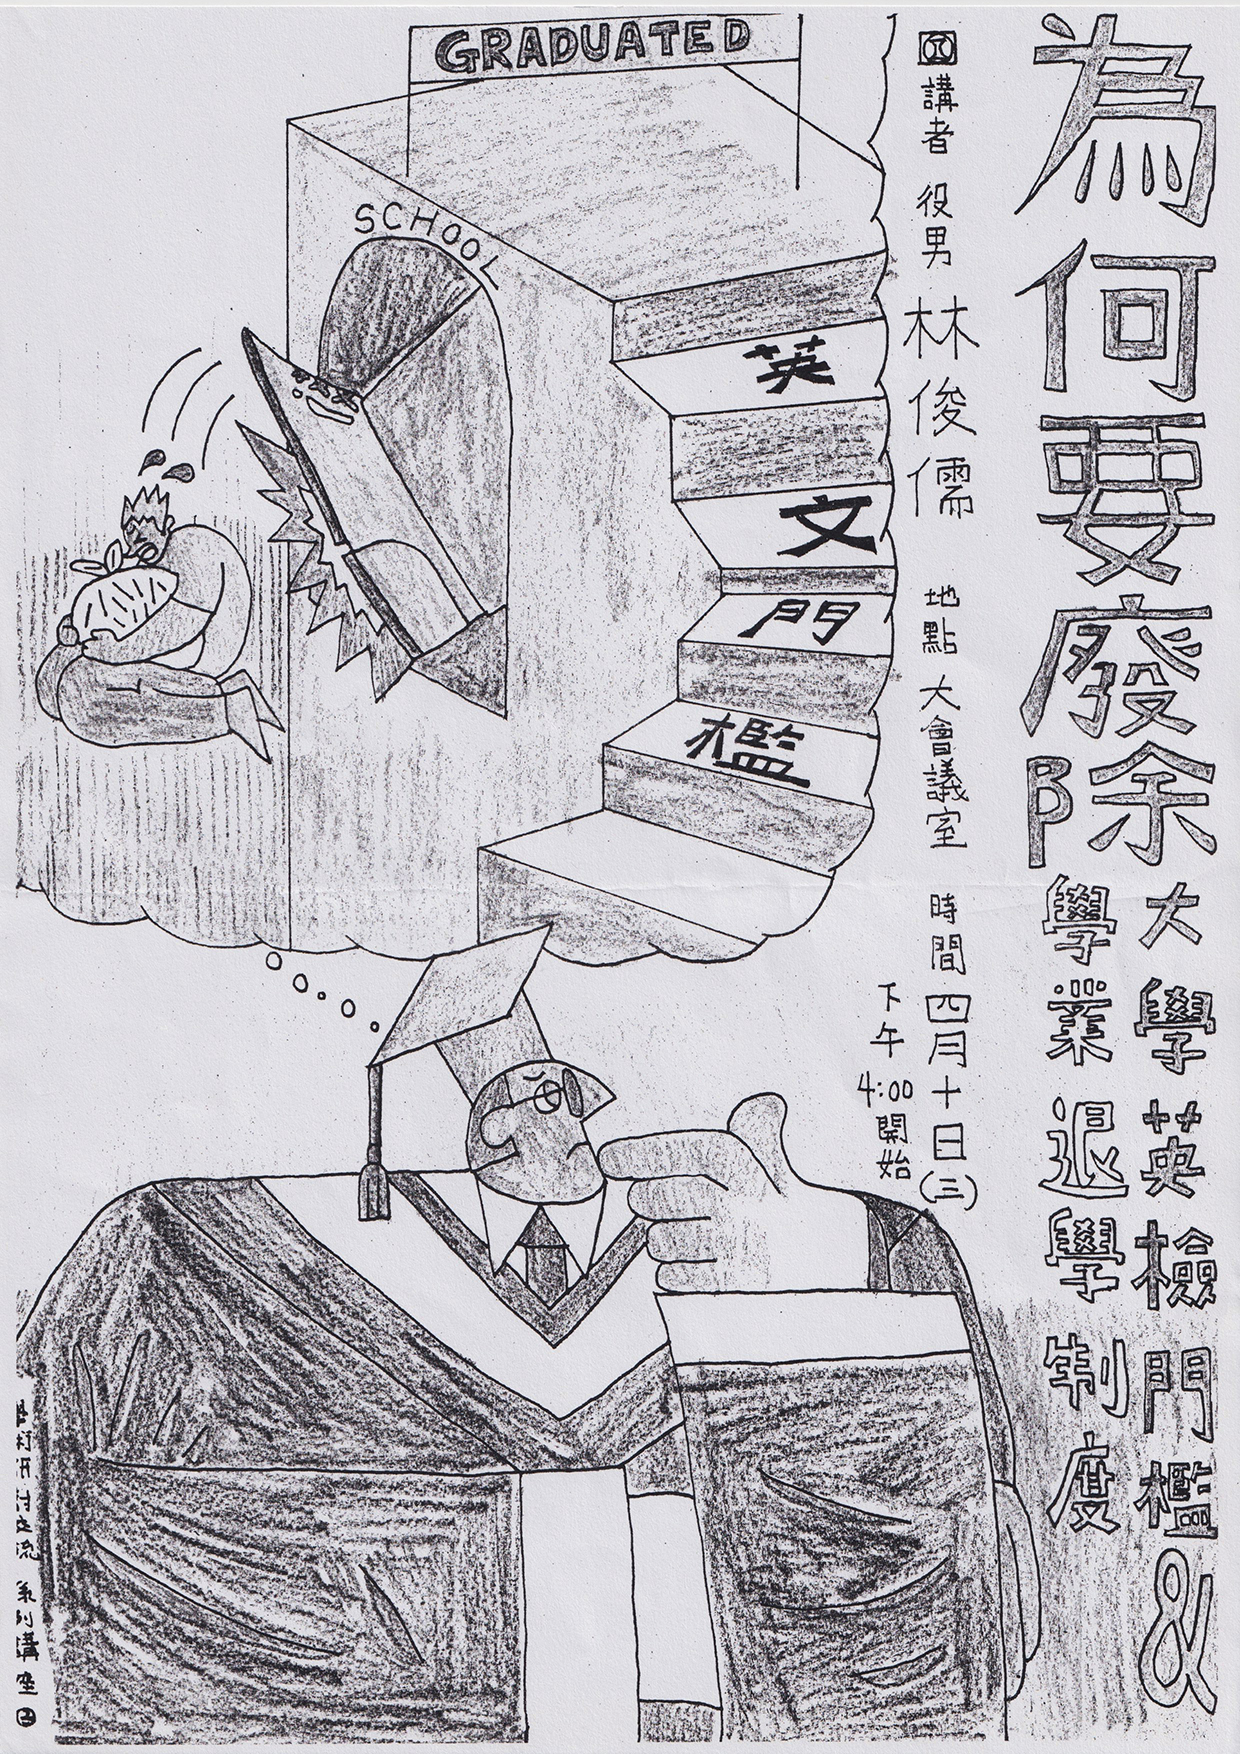 為何要廢除
大學英檢門檻&
學業退學制度
講者 役男 林俊儒 地點 大會議室 時間 四月十日(三)
下午4:00開始
GRADUATED
SCHOOL
英文門檻
學術研討交流 系列講座